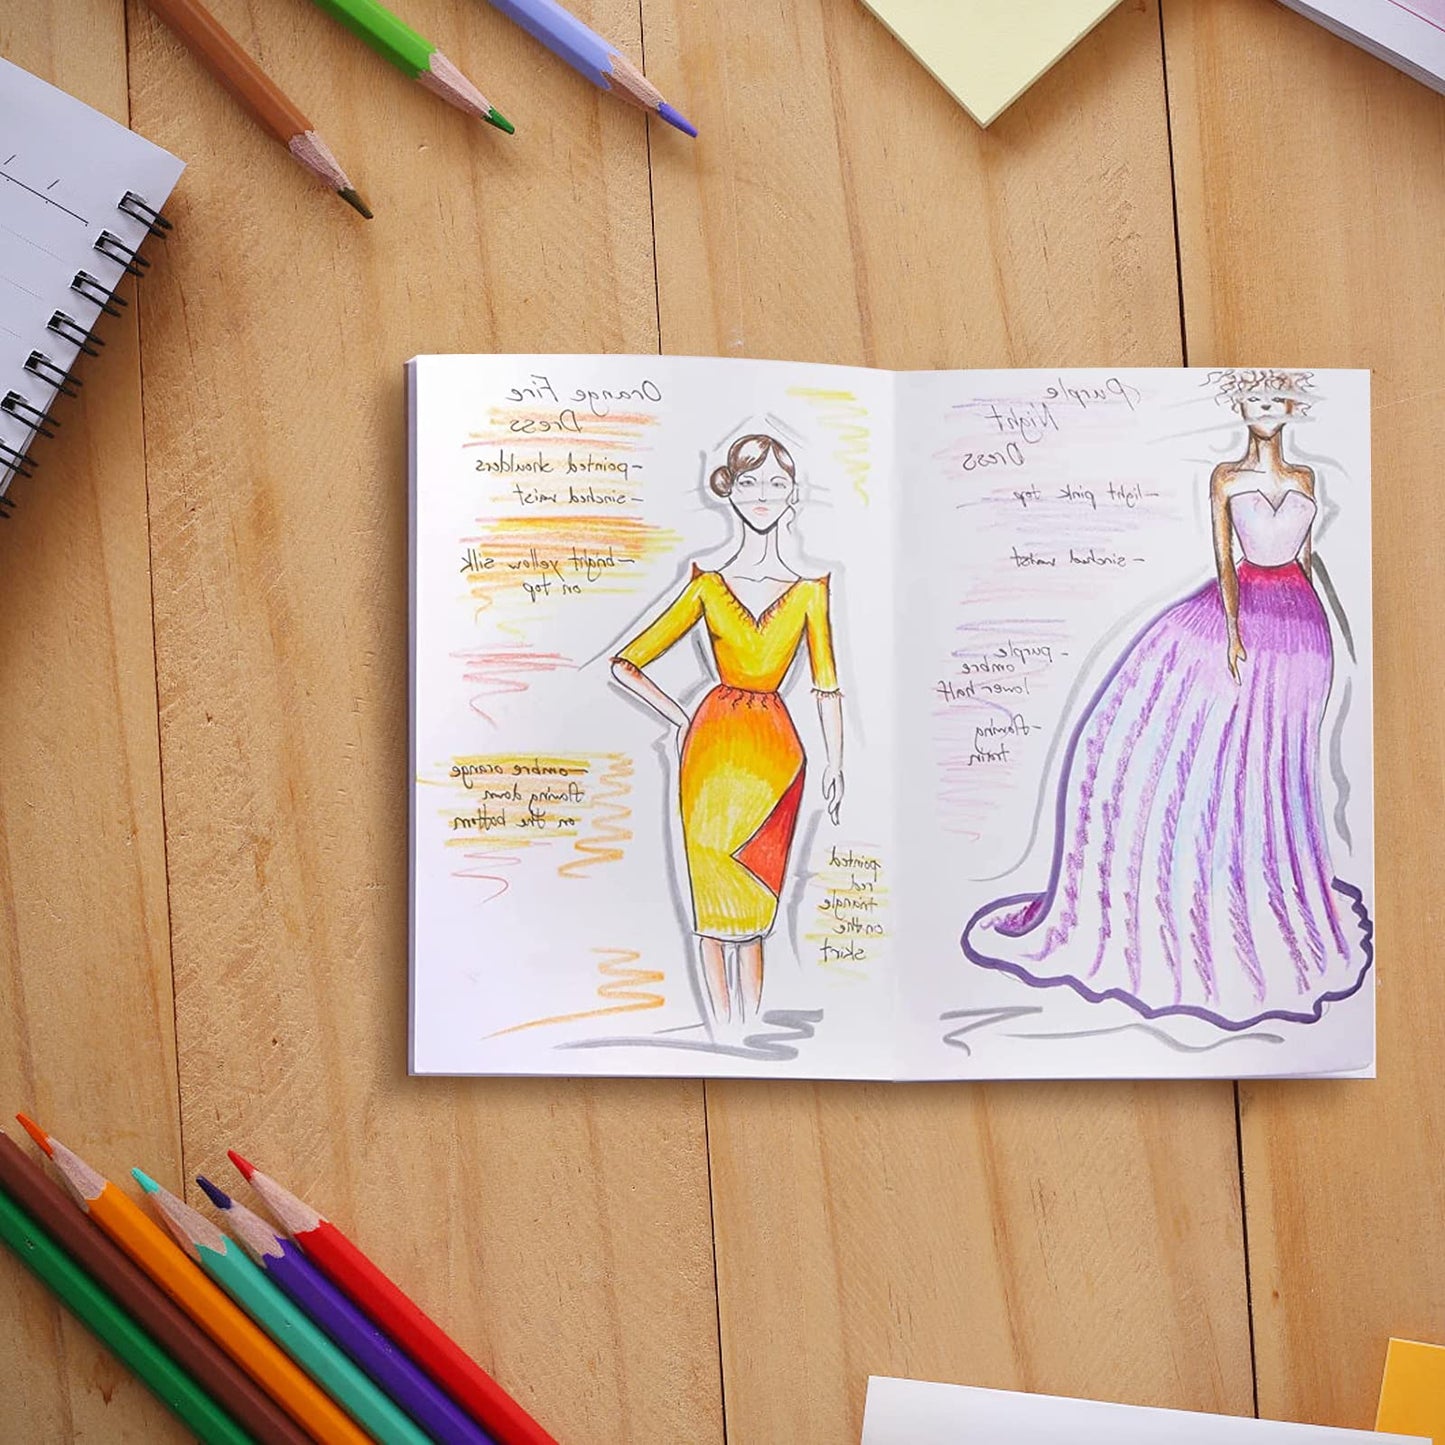 Orange Fire
Dress
- pointed shoulders
- sinched waist
- bright yellow silk
on top
- ombre orange
flowing down
on the bottom
pointed
red
triangle
on the
skirt
Purple
Night
Dress
- light pink top
- sinched waist
- purple
ombre
lower half
- flowing
train